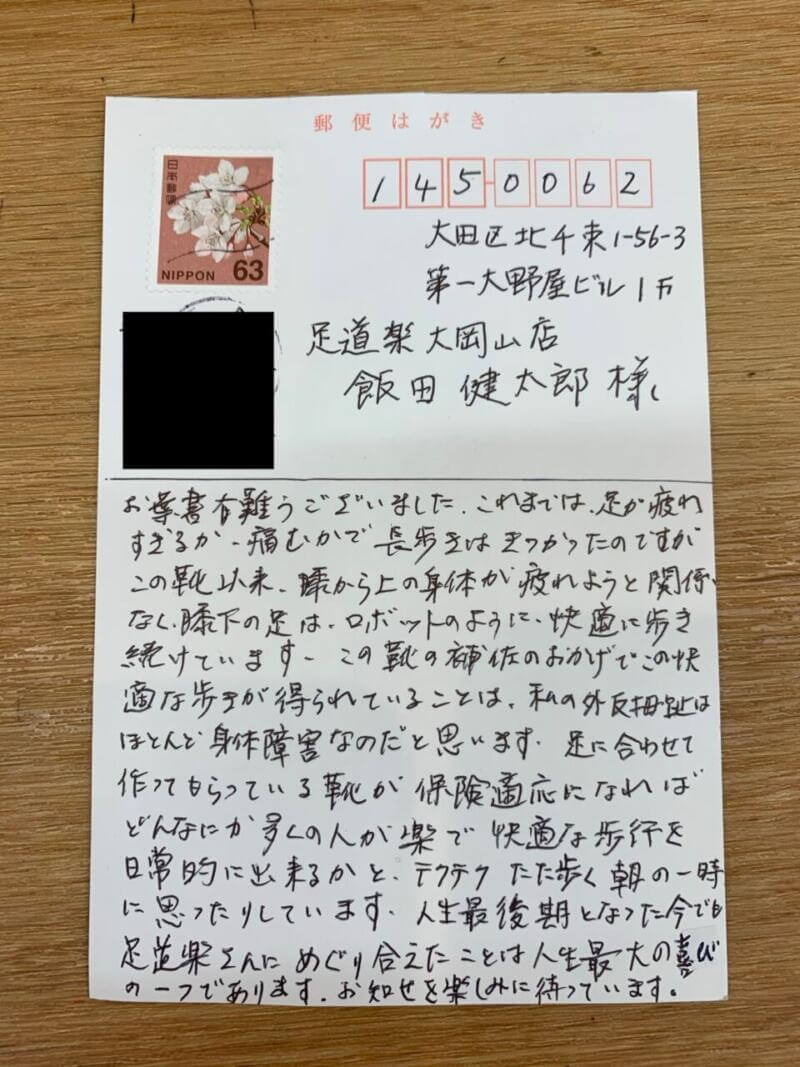 郵便はがき
日本郵便
NIPPON 63
145-0062
大田区北千束1-56-3
第一大野屋ビル1F
足道楽大岡山店
飯田健太郎様
お葉書有難うございました。これまでは、足が疲れ
すぎるか、痛むかで長歩きはきつかったのですが
この靴以来、膝から上の身体が疲れようと関係
なく、膝下の足は、ロボットのように、快適に歩き
続けています。この靴の補佐のおかげでこの快
適な歩きが得られていることは、私の外反拇趾は
ほとんど身体障害なのだと思います。足に合わせて
作ってもらっている靴が保険適応になれば
どんなにか多くの人が楽で快適な歩行を
日常的に出来るかと、テクテクただ歩く朝の一時
に思ったりしています。人生最後期となった今でも
足道楽さんにめぐり合えたことは人生最大の喜び
の一つであります。お知せを楽しみに待っています。